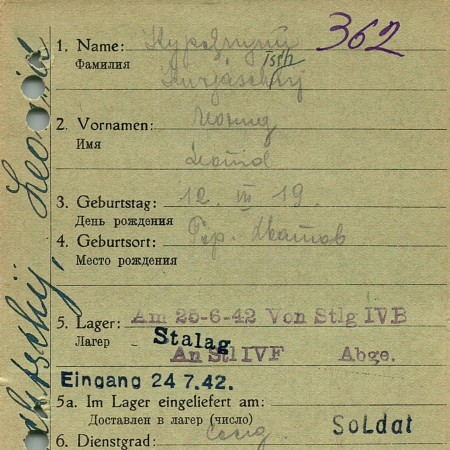 362
1. Name:
Фамилия
2. Vornamen: Леонид
Имя
Leonid
3. Geburtstag: 12. III 19.
День рождения
4. Geburtsort:
Место рождения
5. Lager: Am 25-6-42 Von Stlg IVB
Лагер Stalag
An Stl IVF Abge.
Eingang 24 7.42.
5a. Im Lager eingeliefert am:
Доставлен в лагер (число)
Soldat
6. Dienstgrad: